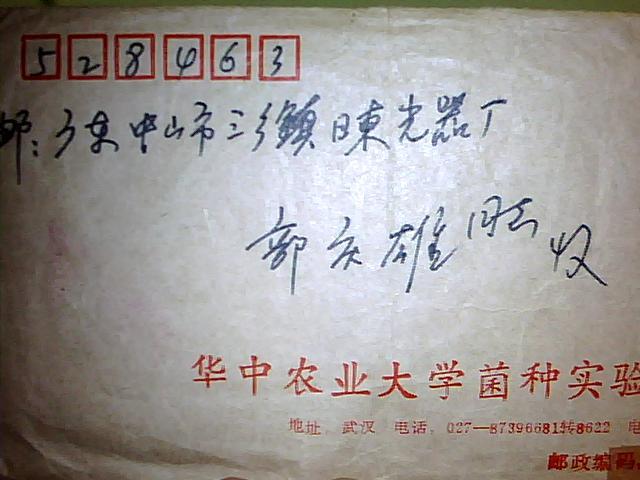 528463
邮:广东中山市三乡鎮日東光器厂
郭庆雄同志 收
华中农业大学菌种实验
地址 武汉 电话.027—87396681转8622 电
邮政编码